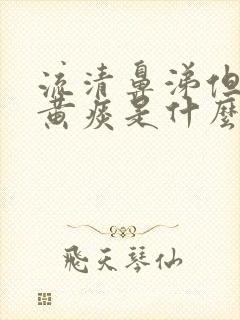 流清鼻涕但
黄痰是什麽
飛天琴仙